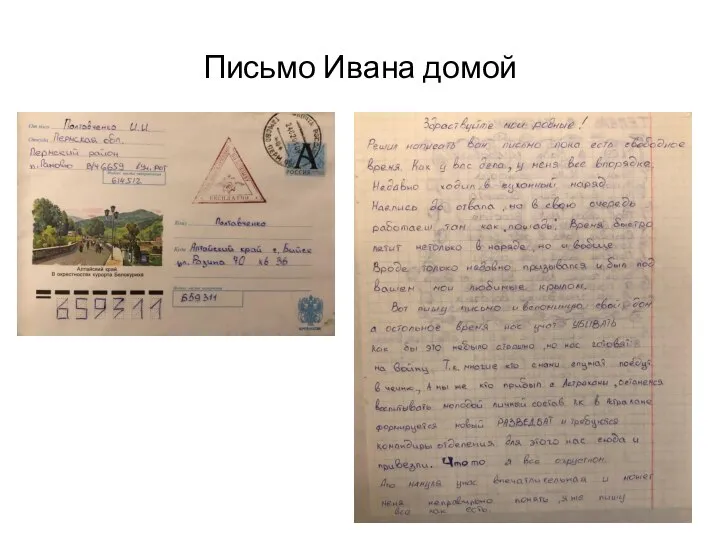 Письмо Ивана домой
От кого Полтавченко И.И
Откуда Пермская обл.
Пермский район
в/ч 6659
614512
А
РОССИЯ
БЕСПЛАТНО
Кому Полтавченко
Куда Алтайский край г. Бийск
кв 36
659311
Алтайский край.
В окрестностях курорта Белокуриха
659311
Здраствуйте мои родные!
Решил написать вам письмо пока есть свободное
время. Как у вас дела, у меня все впорядке.
Недавно ходил в кухонный наряд.
Наелись до отвала, но в свою очередь
работаеш там как лошадь. Время быстро
летит нетолько в наряде, но и вобще
Вроде только недавно призывался и был под
вашем мои любимые крылом.
Вот пишу письмо и вспоминаю свой дом
а остольное время нас учат УБИВАТЬ
Как бы это небыло страшно, но нас готовят
на войну. Т.к. многие кто снами служат поедут
в чечню, А мы же кто прибыл с Астрахани, останемся
воспитывать молодой личный состав т.к. в Астрахане
формируется новый РАЗВЕДБАТ и требуются
командиры отделения для этого нас сюда и
привезли. Что то я все о грустном.
может
меня неправильно понять, я же пишу
все как есть.